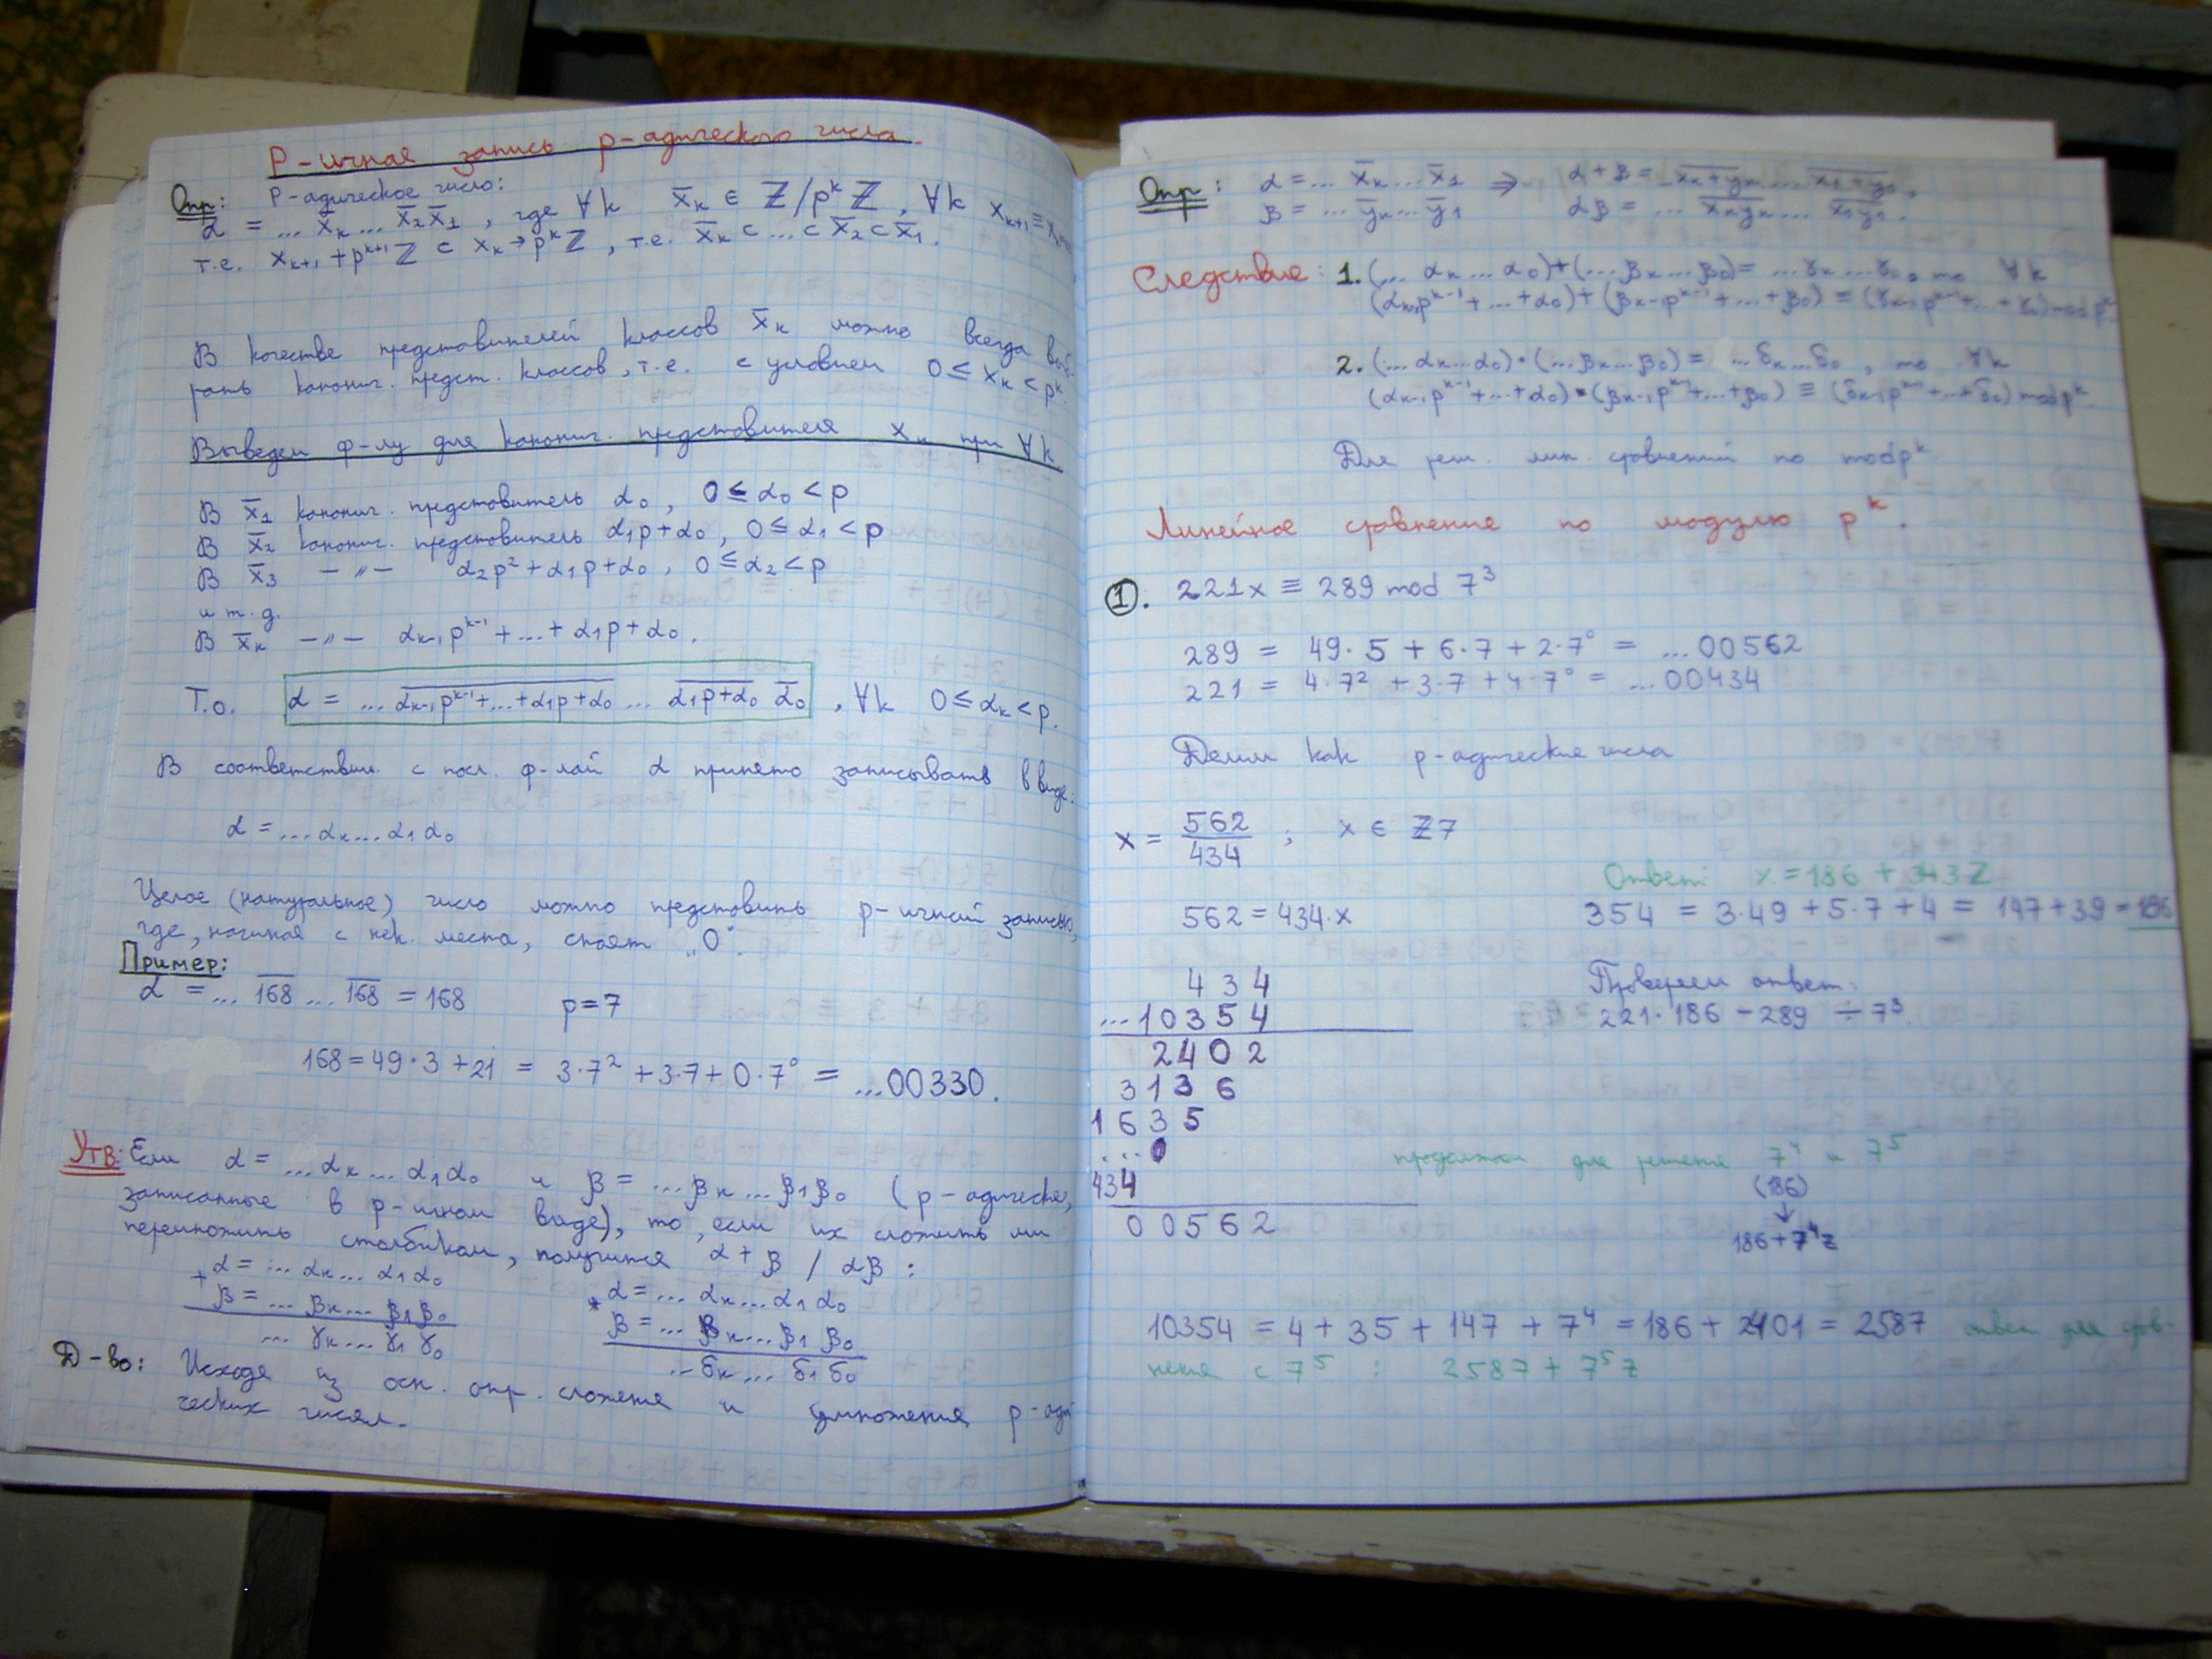 P-ичная запись p-адического числа.
Опр: P-адическое число:
α = ... x̄ₖ ... x̄₂x̄₁, где ∀k x̄ₖ ∈ Z/pᵏZ, ∀k xₖ₊₁ ≡ x
т.е. xₖ₊₁ + pᵏ⁺¹Z ⊂ xₖ + pᵏZ, т.е. x̄ₖ ⊂ ... ⊂ x̄₂ ⊂ x̄₁.
В качестве представителей классов x̄ₖ можно всегда выб-
рать канонич. предст. классов, т.е. с условием 0 ≤ xₖ < pᵏ.
Выведем ф-лу для канонич. представителя xₖ при ∀k.
В x̄₁ канонич. представитель α₀, 0 ≤ α₀ < p
В x̄₂ канонич. представитель α₁p+α₀, 0 ≤ α₁ < p
В x̄₃ —〃— α₂p² + α₁p + α₀, 0 ≤ α₂ < p
и т.д.
В x̄ₖ —〃— αₖ₋₁pᵏ⁻¹ + ... + α₁p + α₀.
Т.о. α = ... αₖ₋₁pᵏ⁻¹+...+α₁p+α₀ ... α₁p+α₀ ᾱ₀, ∀k 0 ≤ αₖ < p.
В соответствии с посл. ф-лой α принято записывать в виде:
α = ... αₖ ... α₁ α₀
Целое (натуральное) число можно представить p-ичной записью,
где, начиная с нек. места, стоят „0".
Пример:
α = ... 168 ... 168 = 168 p=7
168 = 49·3 + 21 = 3·7² + 3·7 + 0·7⁰ = ...00330.
Утв: Если α = ... αₖ ... α₁α₀ и β = ... βₖ ... β₁β₀ (p-адические,
записанные в p-ичном виде), то, если их сложить или
перемножить столбиком, получится α+β / αβ :
+ α = ... αₖ ... α₁α₀ * α = ... αₖ ... α₁ α₀
β = ... βₖ ... β₁β₀ β = ... βₖ ... β₁ β₀
... γₖ ... γ₁ γ₀ ... δₖ ... δ₁ δ₀
Д-во: Исходя из осн. опр. сложения и умножения p-ади-
ческих чисел.
Опр: α = ... x̄ₖ ... x̄₁ ⇒ α+β = ... xₖ+yₖ ...
β = ... ȳₖ ... ȳ₁ αβ = ... xₖyₖ ... x₁y₁.
Следствие: 1. (... αₖ ... α₀)+(... βₖ ... β₀) = ... γₖ ... γ₀, то ∀k
(αₖ₋₁pᵏ⁻¹ + ... + α₀) + (βₖ₋₁pᵏ⁻¹ + ... + β₀) ≡ (γₖ₋₁pᵏ⁻¹ + ... + γ₀) mod pᵏ
2. (... αₖ ... α₀)·(... βₖ ... β₀) = ... δₖ ... δ₀, то ∀k
(αₖ₋₁pᵏ⁻¹ + ... + α₀)·(βₖ₋₁pᵏ⁻¹ + ... + β₀) ≡ (δₖ₋₁pᵏ⁻¹ + ... + δ₀) mod pᵏ.
Для реш. лин. сравнений по mod pᵏ
Линейное сравнение по модулю pᵏ.
①. 221x ≡ 289 mod 7³
289 = 49·5 + 6·7 + 2·7⁰ = ...00562
221 = 4·7² + 3·7 + 4·7⁰ = ...00434
Делим как p-адические числа
x = 562/434 ; x ∈ Z7
Ответ: x = 186 + 343Z
562 = 434·x
354 = 3·49 + 5·7 + 4 = 147+39 = 186
Проверяем ответ:
221·186 − 289 ÷ 7³.
434
...10354
2402
3136
1635
...0
434
00562
продолжаем для решения 7⁴ и 7⁵
(186)
↓
186+7⁴z
10354 = 4 + 35 + 147 + 7⁴ = 186 + 2401 = 2587 ответ для срав-
нения с 7⁵ : 2587 + 7⁵z